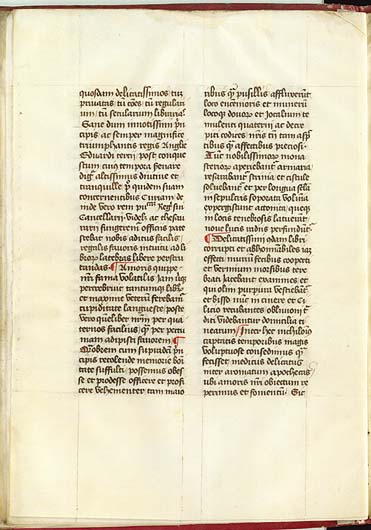 quosdam delicatissimos tū
privatas tū cōes tū regulari
um tū secularium libraria.
Sane dum invictissimi p̄n
cipis ac semper magnifice
triumphantis regis Anglie
Eduardi tercii post conque
stum cuius tempora serenare
dign̄ altissimus diutine et
tranquille p̄ quidem suam
concernentibus Curiam de
inde vero rem pu
Cancellarii videlic̄ ac thesau
rarii fungeremur officiis pate
scebat nobis aditus facilis
regalis favoris intuitu ad li
bror latebras libere perscru
tandas ¶ Amoris quippe
nr̄i fama volatilis iam ubiqȝ
percrebruit tantumqȝ libror
et maxime veterum ferebam
cupiditate languescere posse
vero quemlibet nr̄m per qua
ternos facilius qȝ per pecu
niam adipisci favorem ¶
Quobrem cum supradc̄i pn̄
cipis recolende memorie boni
tate suffulti possemus obes
se et prodesse officere et profi
cere vehementer tam maio
ribus qȝ pusillis affluxerunt
loco enceniorum et munerum
locoqȝ donorum et jocalium te
mulenti quaterni ac decre
piti codices nr̄is tn̄ tam aspc̄
tibus qȝ affectibus preciosi.
Tunc nobilissimorum mona
steriorum aperiebantur armaria
reserabantur scrinia et cistule
solvebantur et per longa secula
in sepulcris soporata volumi
expergiscuntur attonita queqȝ
in locis tenebrosis latuerant
nove lucis radiis perfunduntur
¶ Delicatissimi quondam libri
corrupti et abhominabiles iam
effecti murium fetibus cooperti
et vermium morsibus tere
brati jacebant exanimes et
qui olim purpura vestiebantur
et bisso nunc in cinere et ci
licio recubantes oblivioni tra
diti videbantur domicilia ti
nearum ¶ Inter hec nichilominus
captatis temporibus magis
voluptuose consedimus qȝ
fecisset medicus delicatus
inter aromatum apothecas
ubi amoris nr̄i obiectum re
perimus et fomentum. Sic